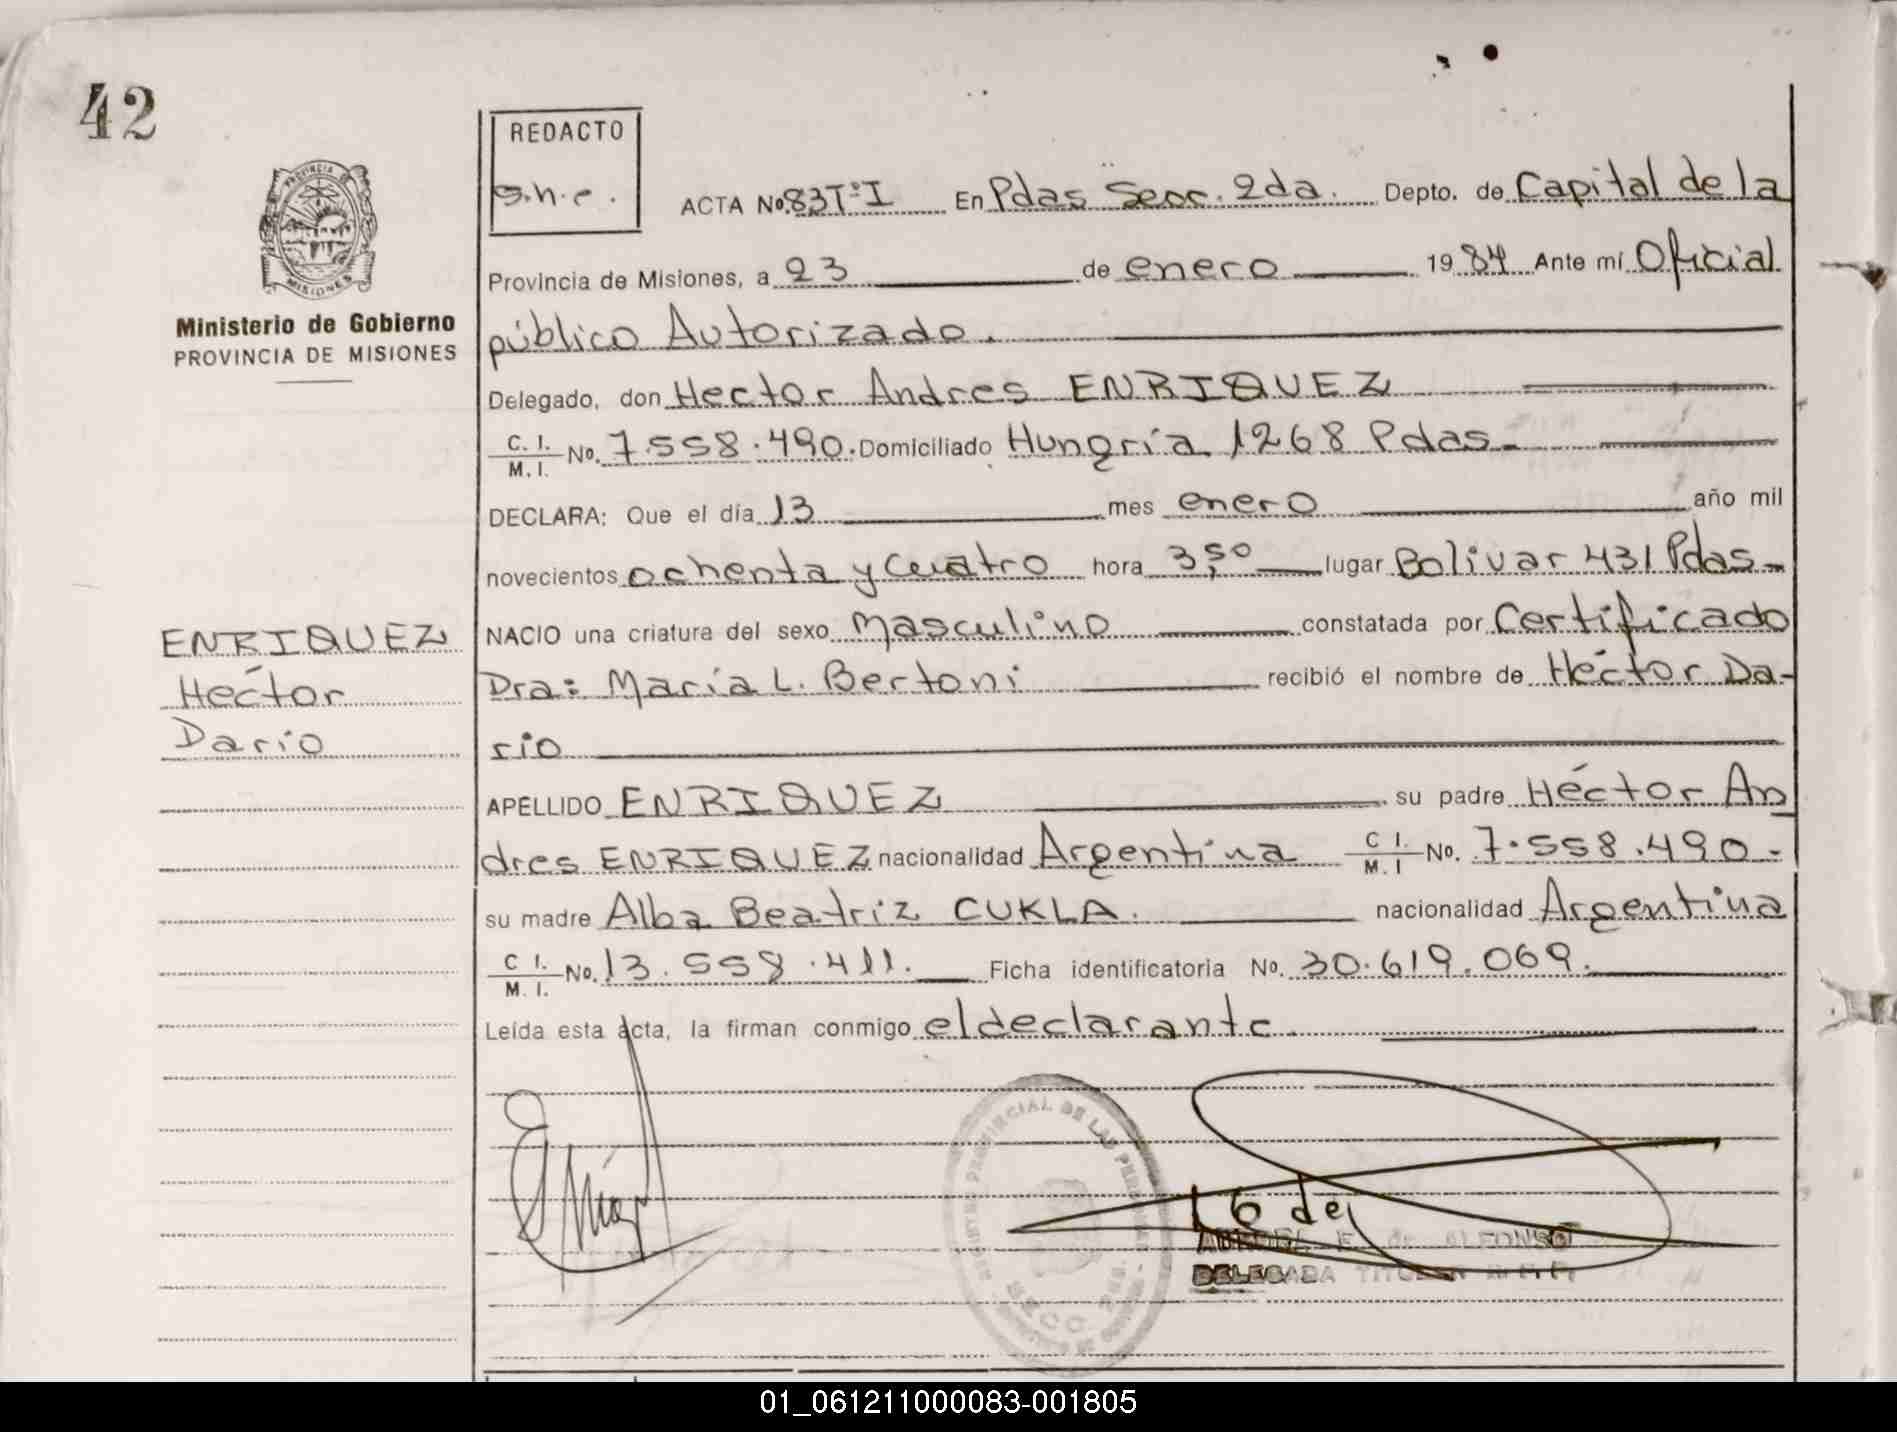 42
REDACTO
s.h.e.
PROVINCIA DE
MISIONES
Ministerio de Gobierno
PROVINCIA DE MISIONES
ACTA No. 83 TºI En Pdas Secc. 2da. Depto. de Capital de la
Provincia de Misiones, a 23 de enero 1984 Ante mí Oficial
público Autorizado.
Delegado, don Hector Andres ENRIQUEZ
C. I. / M. I. No. 7.558.490. Domiciliado Hungría 1268 Pdas-
DECLARA: Que el día 13 mes enero año mil
novecientos ochenta y cuatro hora 3,50 lugar Bolivar 431 Pdas-
NACIO una criatura del sexo masculino constatada por Certificado
Dra: María L. Bertoni recibió el nombre de Héctor Da-
río
APELLIDO ENRIQUEZ su padre Héctor An
dres ENRIQUEZ nacionalidad Argentina C I. / M. I No. 7.558.490-
su madre Alba Beatriz CUKLA. nacionalidad Argentina
C I. / M. I. No. 13.558.411. Ficha identificatoria No. 30.619.069.
Leída esta acta, la firman conmigo el declarante.
ENRIQUEZ
Héctor
Darío
PROVINCIAL DE LAS PERSONAS
SECC.
de ALFONSO
DELEGADA TITULAR
01_061211000083-001805